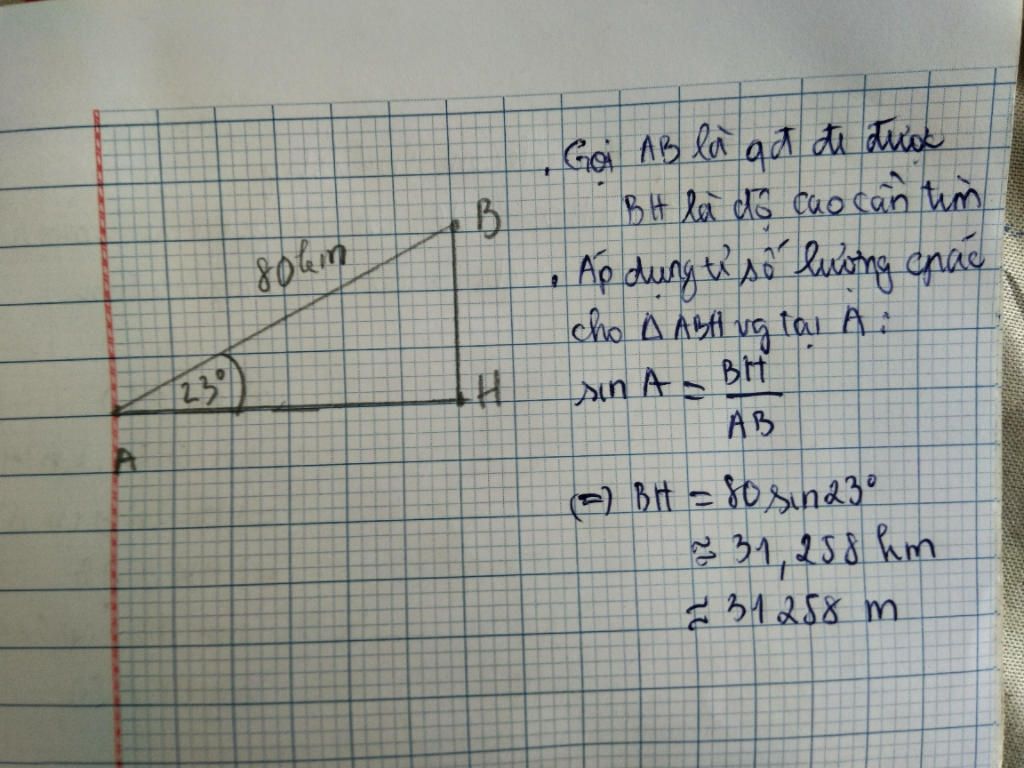 B
80km
23°
H
A
. Gọi AB là qđ đi được
BH là độ cao cần tìm
. Áp dụng tỉ số lượng giác
cho Δ ABH vg tại A :
sin A = BH / AB
(=) BH = 80 sin 23°
≈ 31,258 km
≈ 31258 m